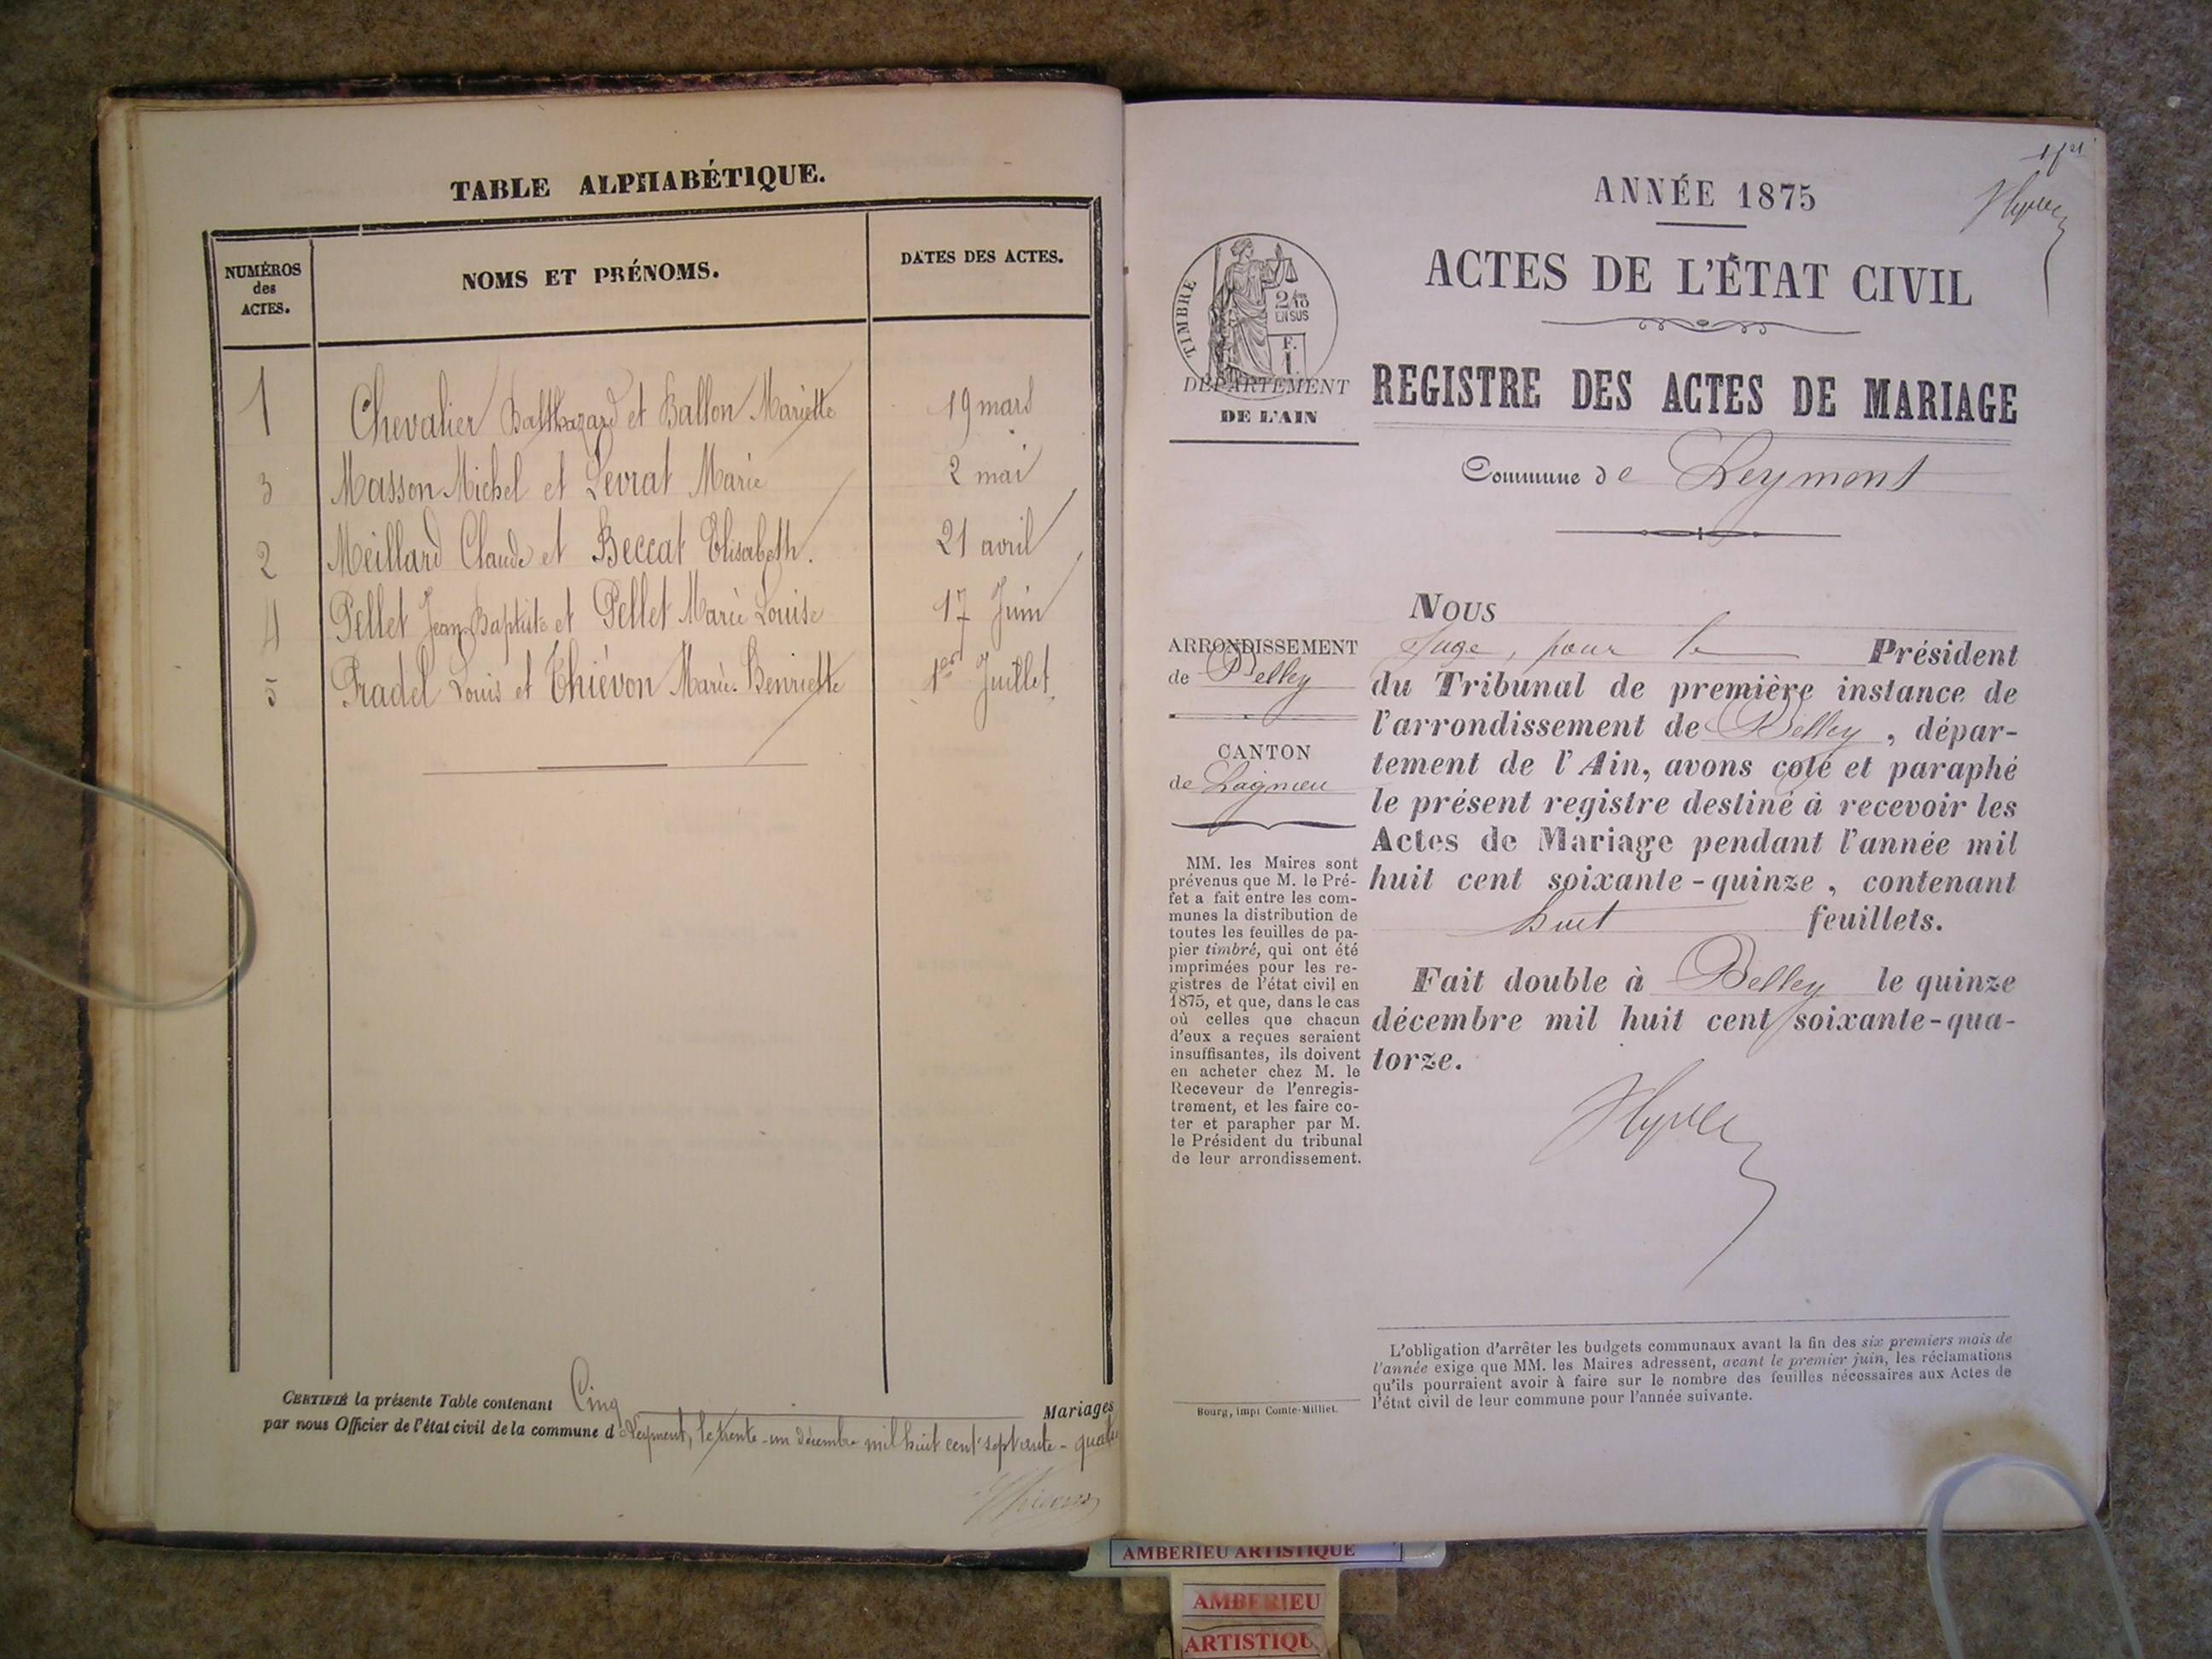 TABLE ALPHABÉTIQUE.
NUMÉROS
des
ACTES.
NOMS ET PRÉNOMS.
DATES DES ACTES.
1 Chevalier Balthazard et Ballon Mariette 19 mars
3 Masson Michel et Levrat Marie 2 mai
2 Meillard Claude et Beccat Elisabeth. 21 avril
4 Pellet Jean-Baptiste et Pellet Marie Louise 17 Juin
5 Pradel Louis et Thiévon Marie-Henriette 1er Juillet
CERTIFIÉ la présente Table contenant Cinq Mariages
par nous Officier de l'état civil de la commune de Leyment, le trente-un décembre mil huit cent septante-quatre
ANNÉE 1875
ACTES DE L'ÉTAT CIVIL
TIMBRE
2/10
EN SUS
F.
1.
DÉPARTEMENT
DE L'AIN
REGISTRE DES ACTES DE MARIAGE
Commune de Leyment
ARRONDISSEMENT
de Belley
CANTON
de Lagnieu
MM. les Maires sont
prévenus que M. le Pré-
fet a fait entre les com-
munes la distribution de
toutes les feuilles de pa-
pier timbré, qui ont été
imprimées pour les re-
gistres de l'état civil en
1875, et que, dans le cas
où celles que chacun
d'eux a reçues seraient
insuffisantes, ils doivent
en acheter chez M. le
Receveur de l'enregis-
trement, et les faire co-
ter et parapher par M.
le Président du tribunal
de leur arrondissement.
NOUS
Juge, pour le Président
du Tribunal de première instance de
l'arrondissement de Belley, dépar-
tement de l'Ain, avons coté et paraphé
le présent registre destiné à recevoir les
Actes de Mariage pendant l'année mil
huit cent soixante-quinze, contenant
huit feuillets.
Fait double à Belley le quinze
décembre mil huit cent soixante-qua-
torze.
L'obligation d'arrêter les budgets communaux avant la fin des six premiers mois de
l'année exige que MM. les Maires adressent, avant le premier juin, les réclamations
qu'ils pourraient avoir à faire sur le nombre des feuilles nécessaires aux Actes de
l'état civil de leur commune pour l'année suivante.
Bourg, impr Comte-Milliet.
AMBERIEU ARTISTIQUE
AMBERIEU
ARTISTIQU